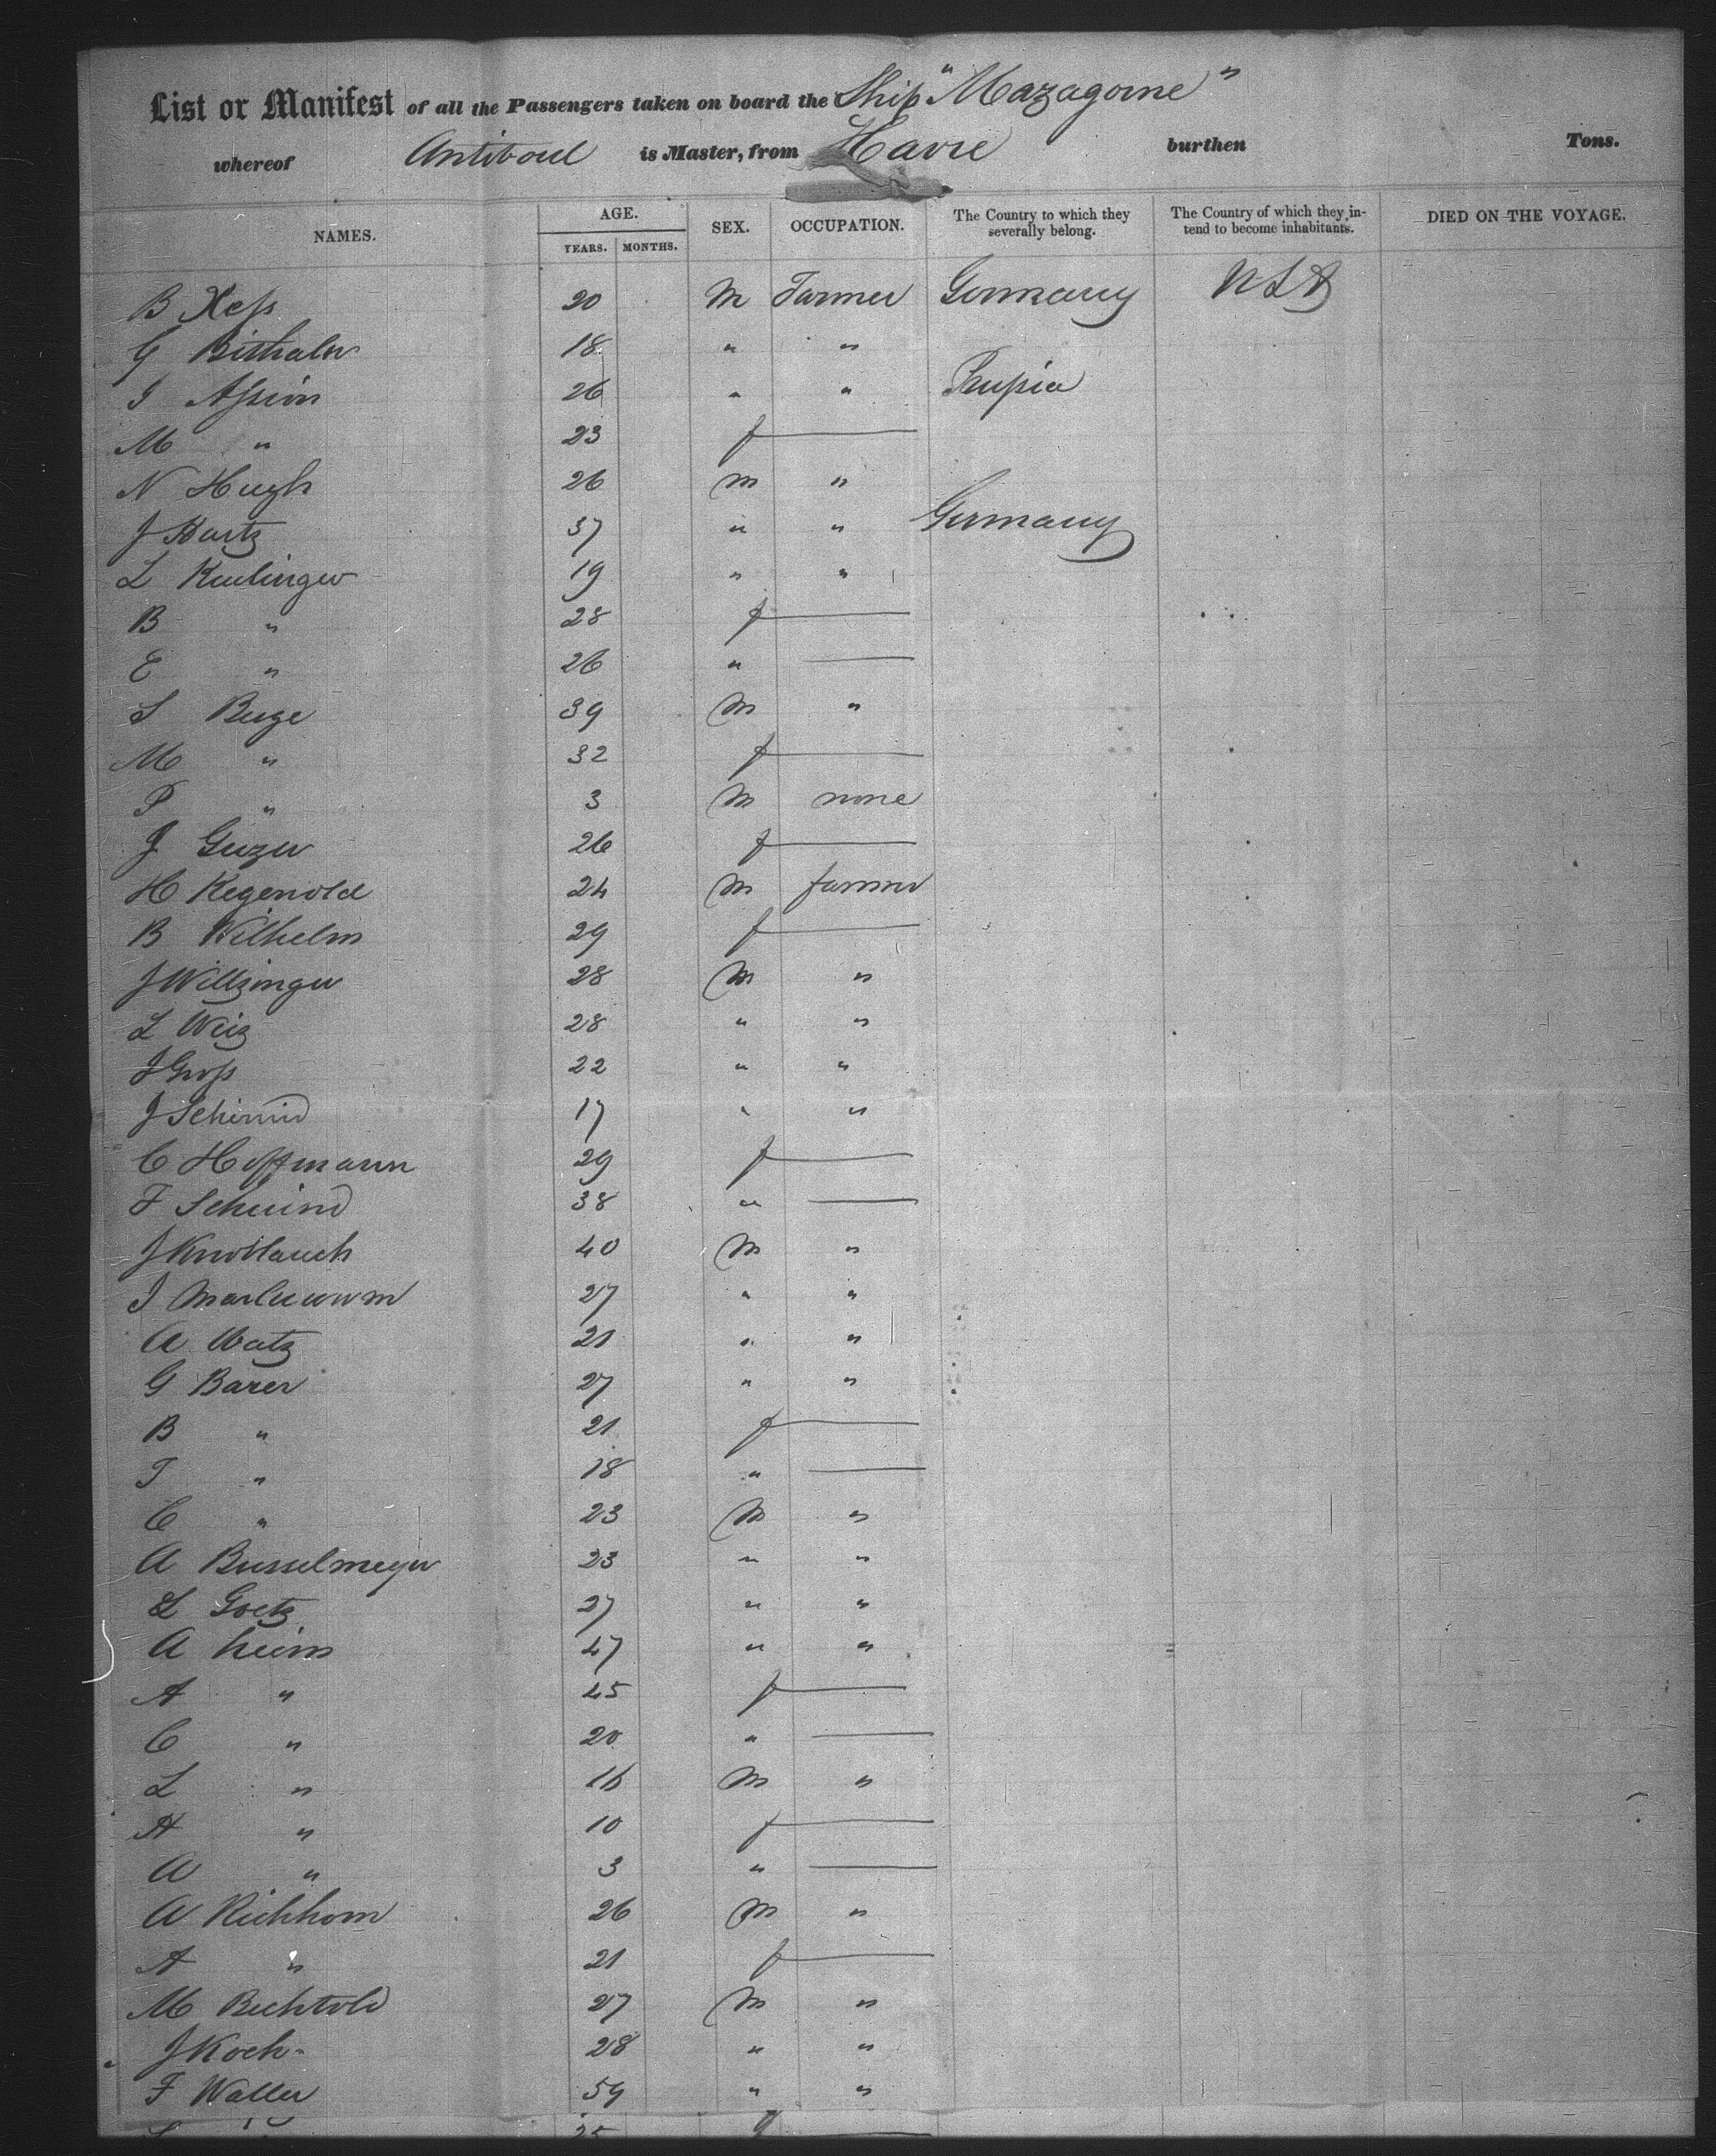 List or Manifest of all the Passengers taken on board the Ship "Mazagome"
whereof Antiboul is Master, from Havre burthen Tons.
NAMES. AGE. YEARS. MONTHS. SEX. OCCUPATION. The Country to which they severally belong. The Country of which they intend to become inhabitants. DIED ON THE VOYAGE.
B Hess 20 M Farmer Germany USA
G Bithaler 18 " "
J Assion 26 " " Prussia
M " 23 f —
N Hugh 26 m "
J Hartz 37 " " Germany
L Keulinger 19 " "
B " 28 f —
E " 26 " —
S Buge 39 M "
M " 32 f —
P " 3 M none
J Geizer 26 f —
H Regenold 24 M farmer
B Wilhelm 29 f —
J Willzinger 28 M "
L Weiz 28 " "
J Gross 22 " "
J Schmid 17 " "
C Hoffmann 29 f —
F Schmind 38 " —
J Knoblauch 40 M "
J 27 " "
A Watz 21 " "
G Barer 27 " "
B " 21 f —
T " 18 " —
C " 23 M "
A Busselmeyer 23 " "
L Goetz 27 " "
A heim 47 " "
A " 45 f —
C " 20 " —
L " 16 M "
A " 10 f —
A " 3 " —
A Richhorn 26 M "
A " 21 f —
M Bechtold 27 M "
J Koch 28 " "
F Waller 59 " "